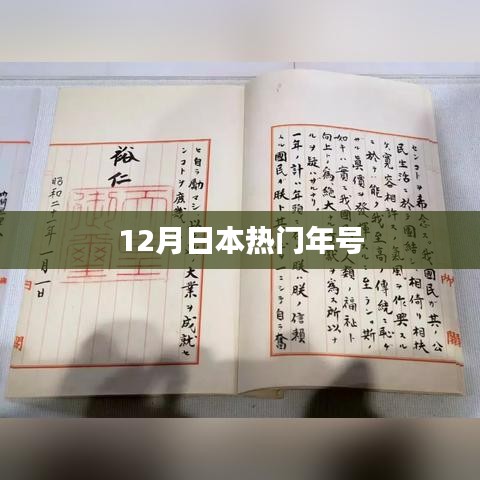 センコトヲ希念ス。我國民ガ其ノ公
民生活ニ於テ團結シ、相倚リ相扶
ケ、寛容相許スノ氣風ヲ作興スル
ニ於テハ能ク我至高ノ傳統ニ恥ヂ
ザル眞價ヲ發揮スルニ至ラン。斯ノ
如キハ實ニ我國民ガ人類ノ福祉ト
向上トノ為、絶大ナル貢獻ヲ為ス所以ナ
ルヲ疑ハザルナリ。
一年ノ計ハ年頭ニ在リ、朕ハ朕ノ信頼
スル國民ガ朕ト其ノ心ヲ一ニシテ自ラ奮
内閣
ヒ自ラ勵マシ以テ此ノ大業ヲ成就セ
ンコトヲ庶幾フ
裕仁
天皇御璽
昭和二十一年一月一日
12月日本热门年号